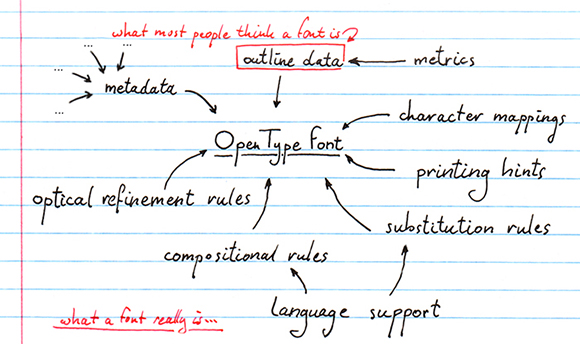 what most people think a font is
...
...
...
...
outline data
metrics
metadata
character mappings
OpenType Font
printing hints
optical refinement rules
substitution rules
compositional rules
language support
what a font really is...